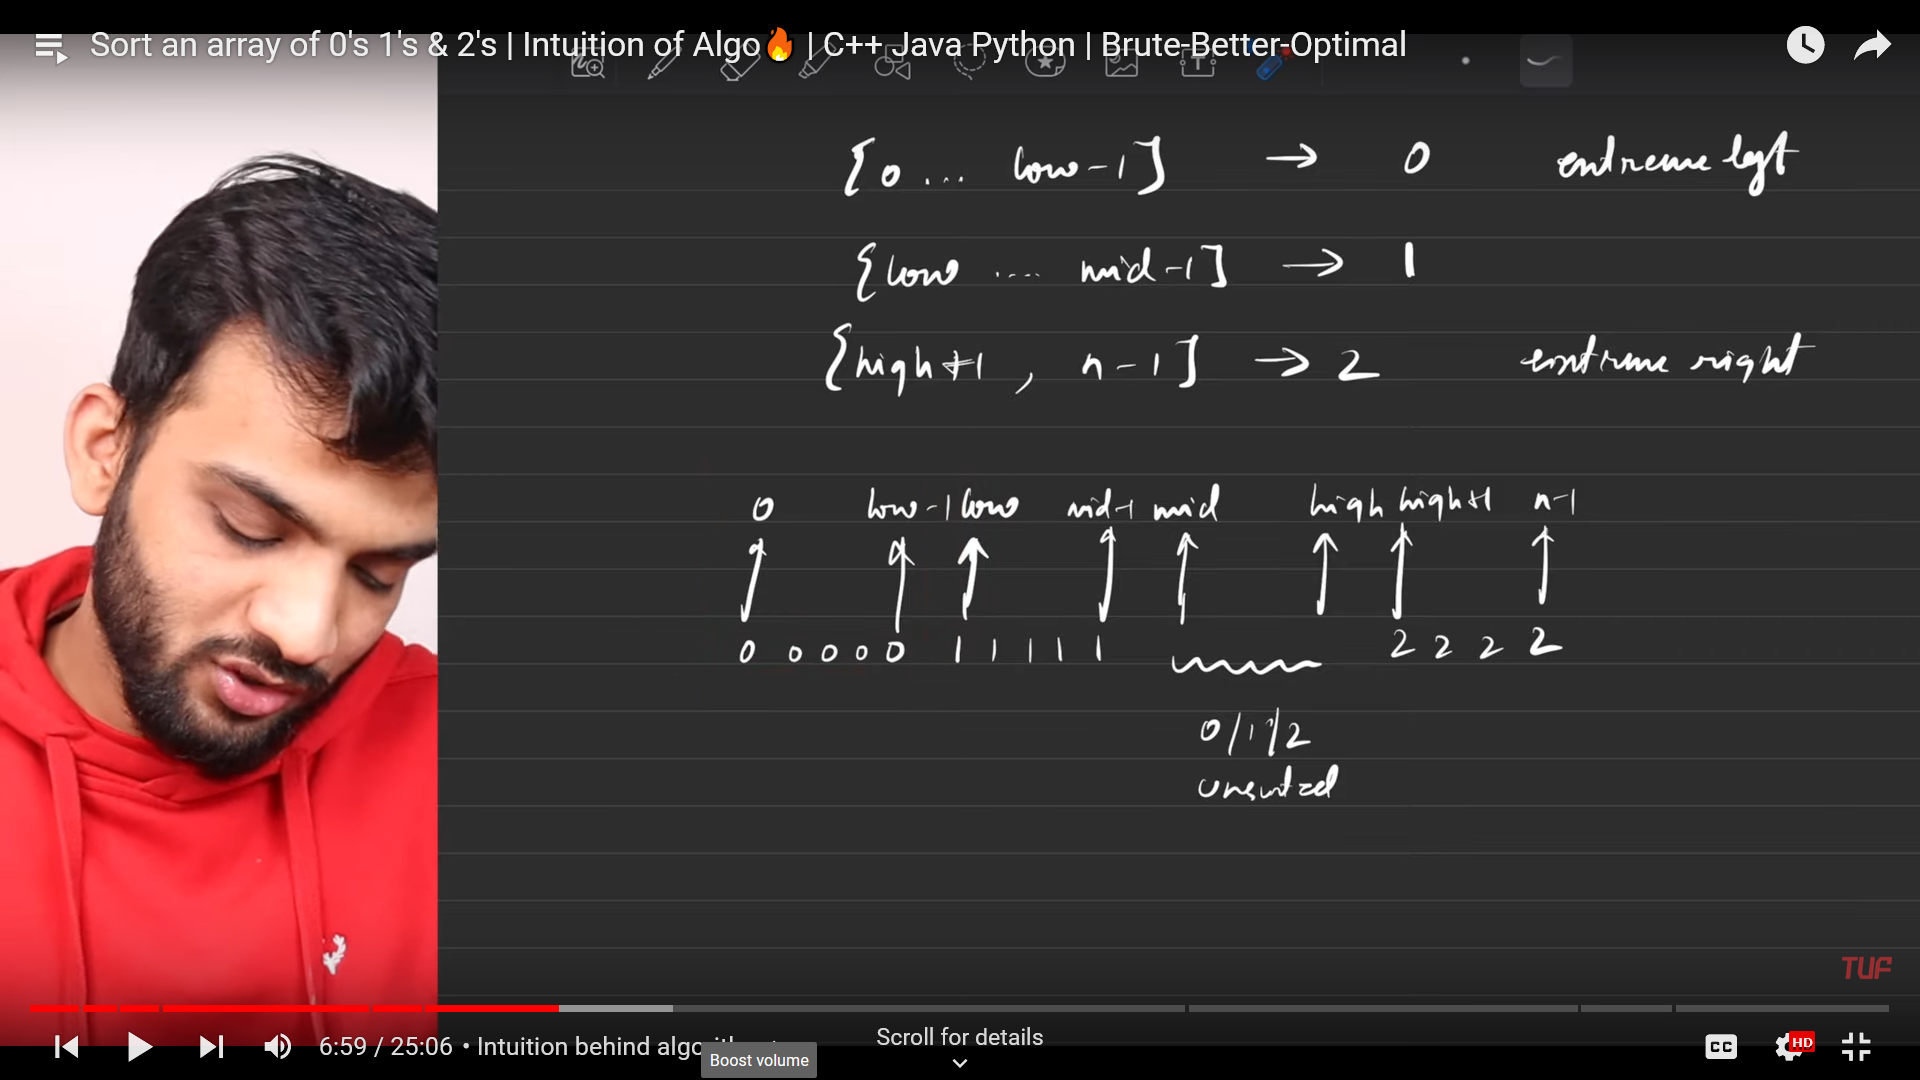 Sort an array of 0's 1's & 2's | Intuition of Algo🔥 | C++ Java Python | Brute-Better-Optimal
[0 ... low-1] → 0 extreme left
[low .... mid-1] → 1
[high+1, n-1] → 2 extreme right
0 low-1 low mid-1 mid high high+1 n-1
0 0 0 0 0 1 1 1 1 1 2 2 2 2
0/1/2
unsorted
TUF
6:59 / 25:06 • Intuition behind algo
Scroll for details
Boost volume
CC
HD